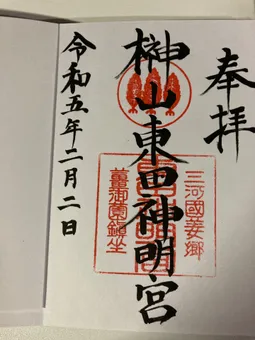 奉拝
榊山東田神明宮
三河國姜郷
薑御園鎮坐
令和五年二月二日